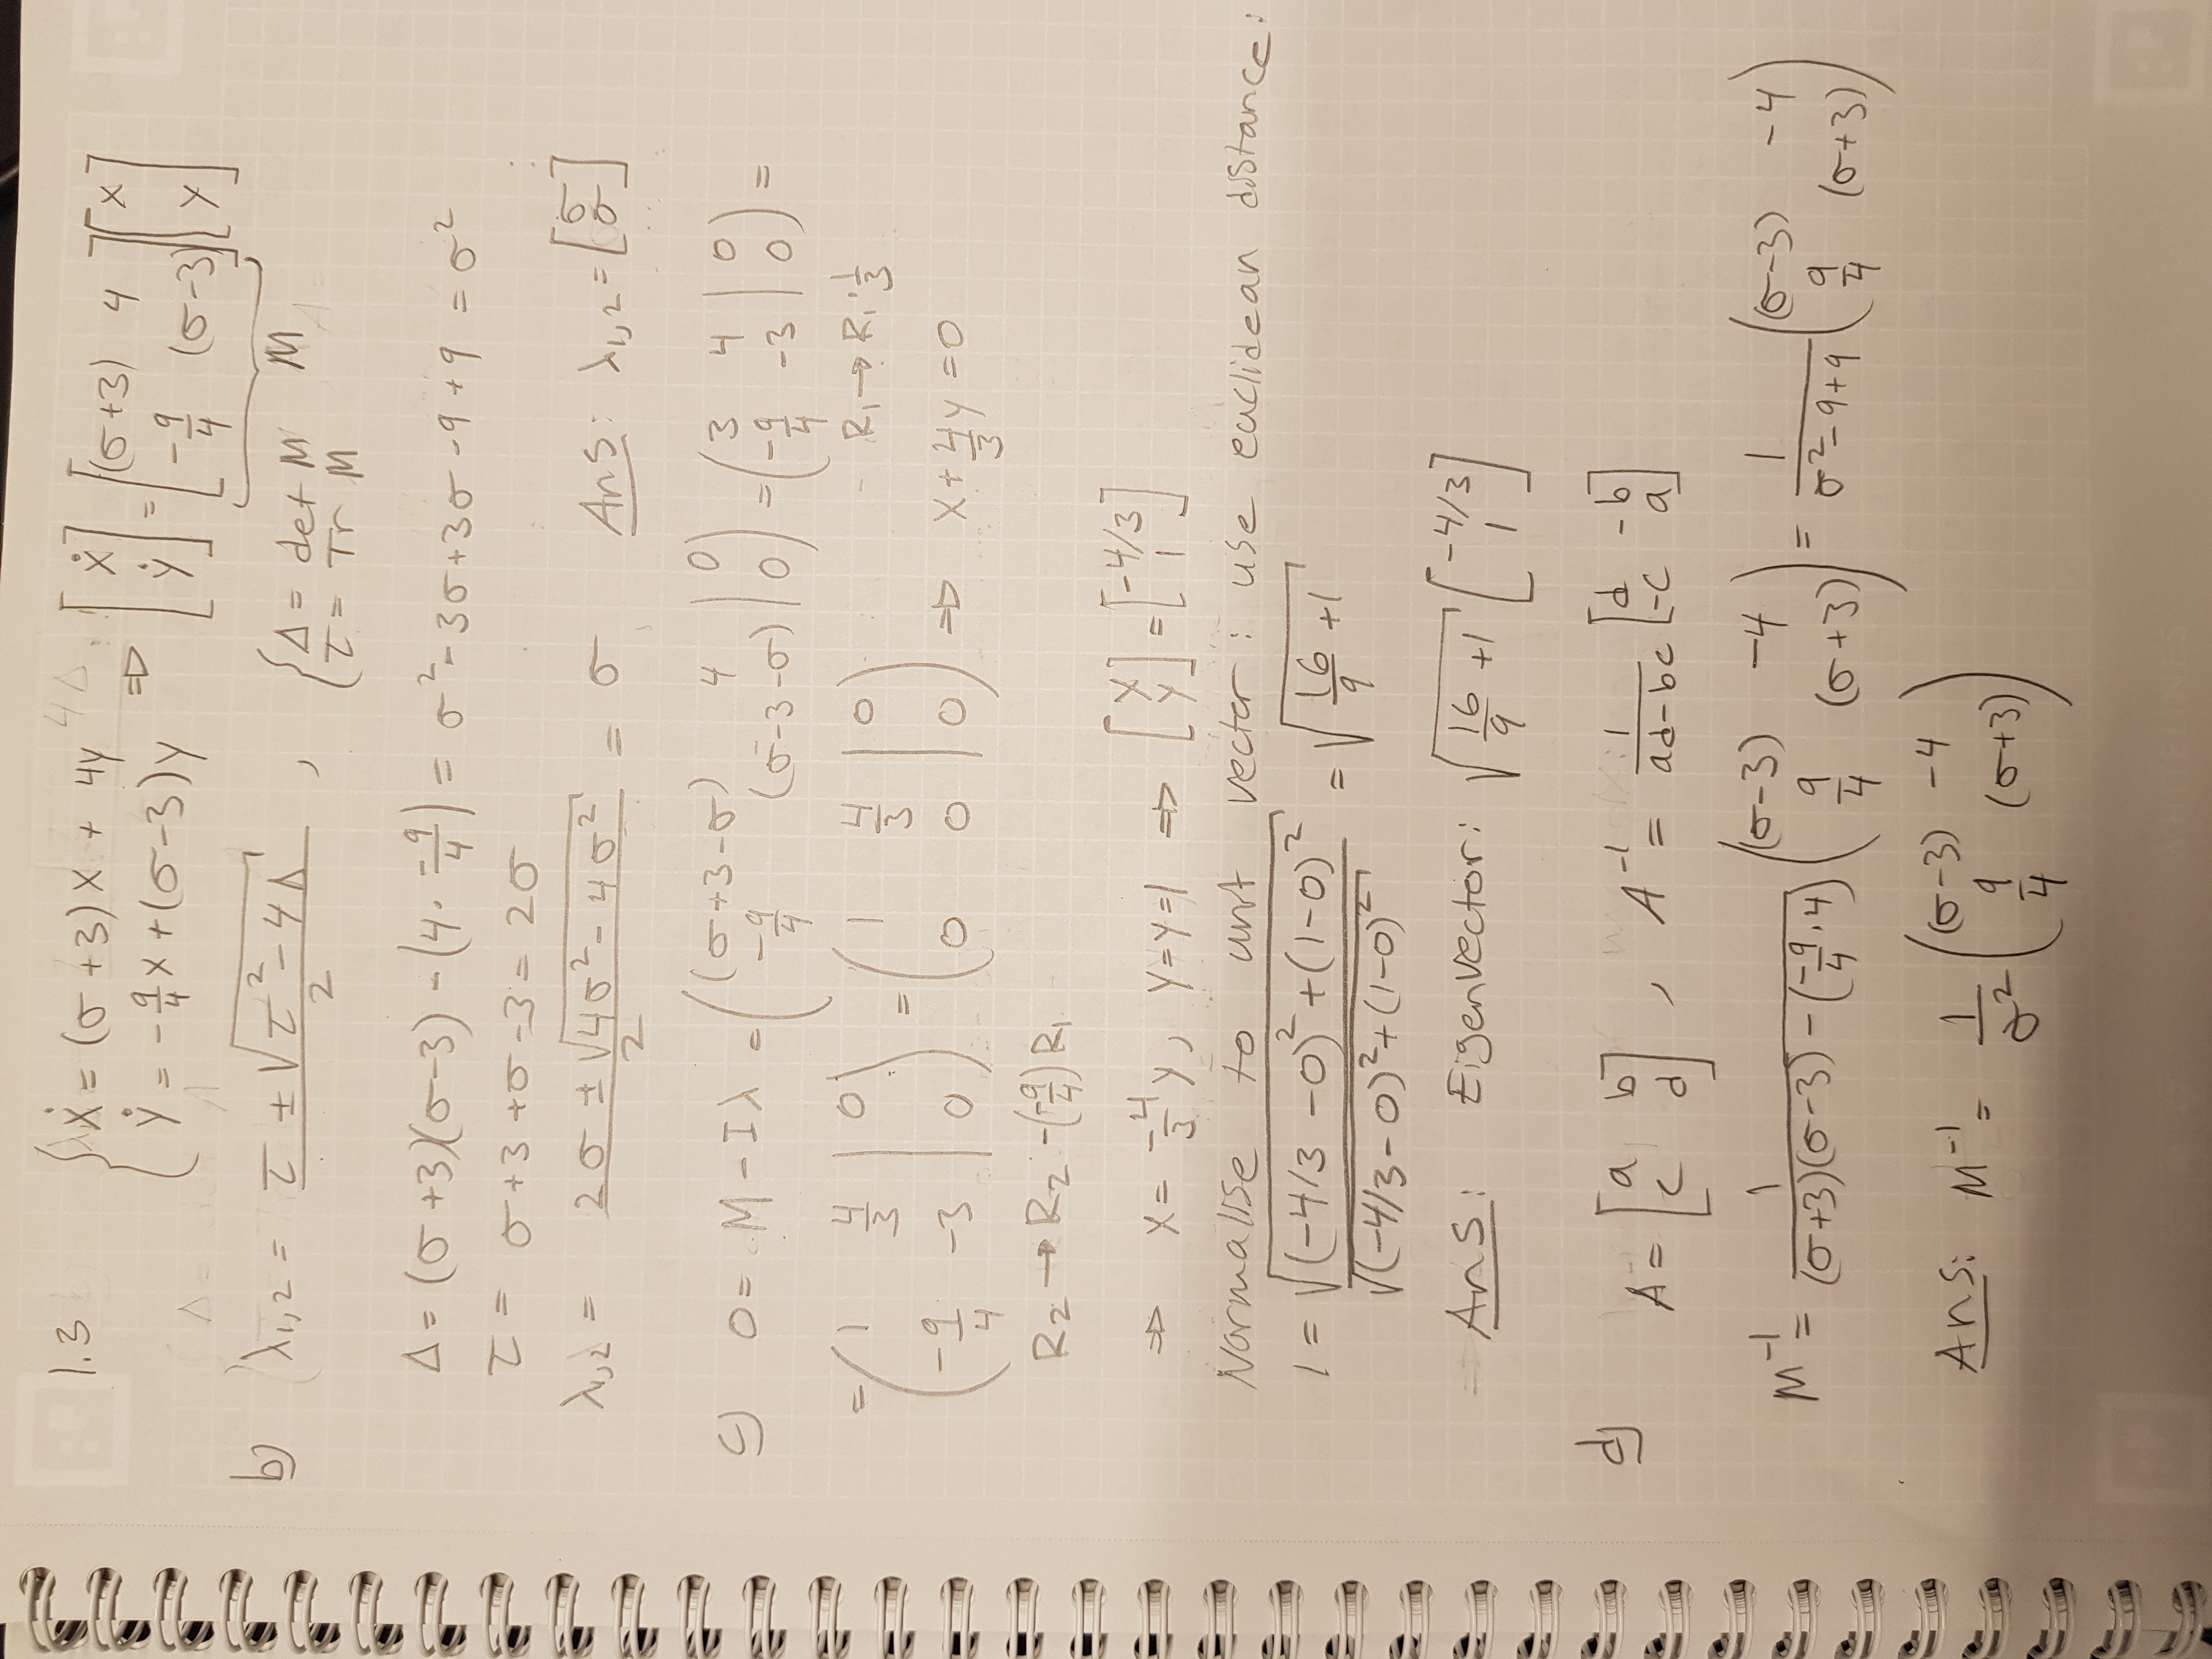 1.3 { ẋ = (σ+3)x + 4y ⇒ [ẋ ẏ] = [(σ+3) 4 -9/4 (σ-3)] [x y]
{ ẏ = -9/4 x + (σ-3)y
M
b) λ1,2 = (τ ± √(τ² - 4Δ)) / 2 , { Δ = det M
{ τ = Tr M
Δ = (σ+3)(σ-3) - (4 · -9/4) = σ² - 3σ + 3σ - 9 + 9 = σ²
τ = σ+3+σ-3 = 2σ
λ1,2 = (2σ ± √(4σ² - 4σ²)) / 2 = σ Ans: λ1,2 = [σ σ]
c) 0 = M - Iλ = ((σ+3-σ) 4 | 0 -9/4 (σ-3-σ) | 0) = (3 4 | 0 -9/4 -3 | 0) =
R1 → R1 · 1/3
= (1 4/3 | 0 -9/4 -3 | 0) = (1 4/3 | 0 0 0 | 0) ⇒ x + 4/3 y = 0
R2 → R2 - (-9/4) R1
⇒ x = -4/3 y, y = y = 1 ⇒ [x y] = [-4/3 1]
Normalise to unit vector: use euclidean distance:
1 = √((-4/3 - 0)² + (1-0)²) / √((-4/3 - 0)² + (1-0)²) = √(16/9 + 1)
Ans: Eigenvector: √(16/9 + 1) [-4/3 1]
d) A = [a b c d] , A⁻¹ = 1/(ad-bc) [d -b -c a]
M⁻¹ = 1/((σ+3)(σ-3) - (-9/4 · 4)) ((σ-3) -4 9/4 (σ+3)) = 1/(σ² - 9 + 9) ((σ-3) -4 9/4 (σ+3))
Ans: M⁻¹ = 1/σ² ((σ-3) -4 9/4 (σ+3))
WHITELINES